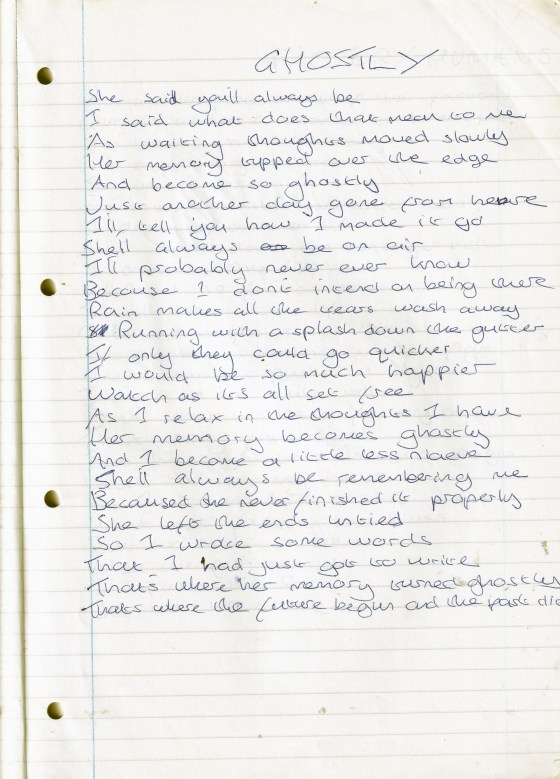 GHOSTLY
She said you'll always be
I said what does that mean to me
As waiting thoughts moved slowly
Her memory tipped over the edge
And become so ghostly
Just another day gone from here
I'll tell you how I made it go
Shell always be on air
I'll probably never ever know
Because I don't intend on being there
Rain makes all the tears wash away
Running with a splash down the gutter
If only they could go quicker
I would be so much happier
Watch as it's all set free
As I relax in the thoughts I have
Her memory becomes ghostly
And I become a little less nieve
Shell always be remembering me
Becaused she never finished it properly
She left the ends untied
So I wrote some words
That I had just got to write
That's where her memory turned ghostly
Thats where the future begun and the past die